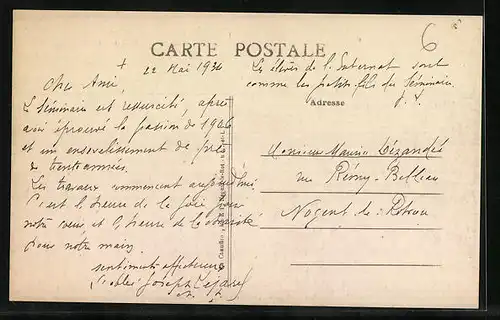 CARTE POSTALE
+
22 Mai 1934
6
Cher Ami,
Le Séminaire est ressuscité, après
avoir éprouvé la passion de 1906
et un ensevelissement de près
de trente années.
Les travaux commencent aujourd'hui
C'est l'heure de la joie pour
notre cœur, et l'heure de la charité
pour notre main.
sentiments affectueux
Joseph
Les élèves de l'Internat sont
comme les petits-fils du Séminaire.
J. L.
Adresse
Monsieur Maurice Dézandé
rue Rémy-Belleau
Nogent-le-Rotrou